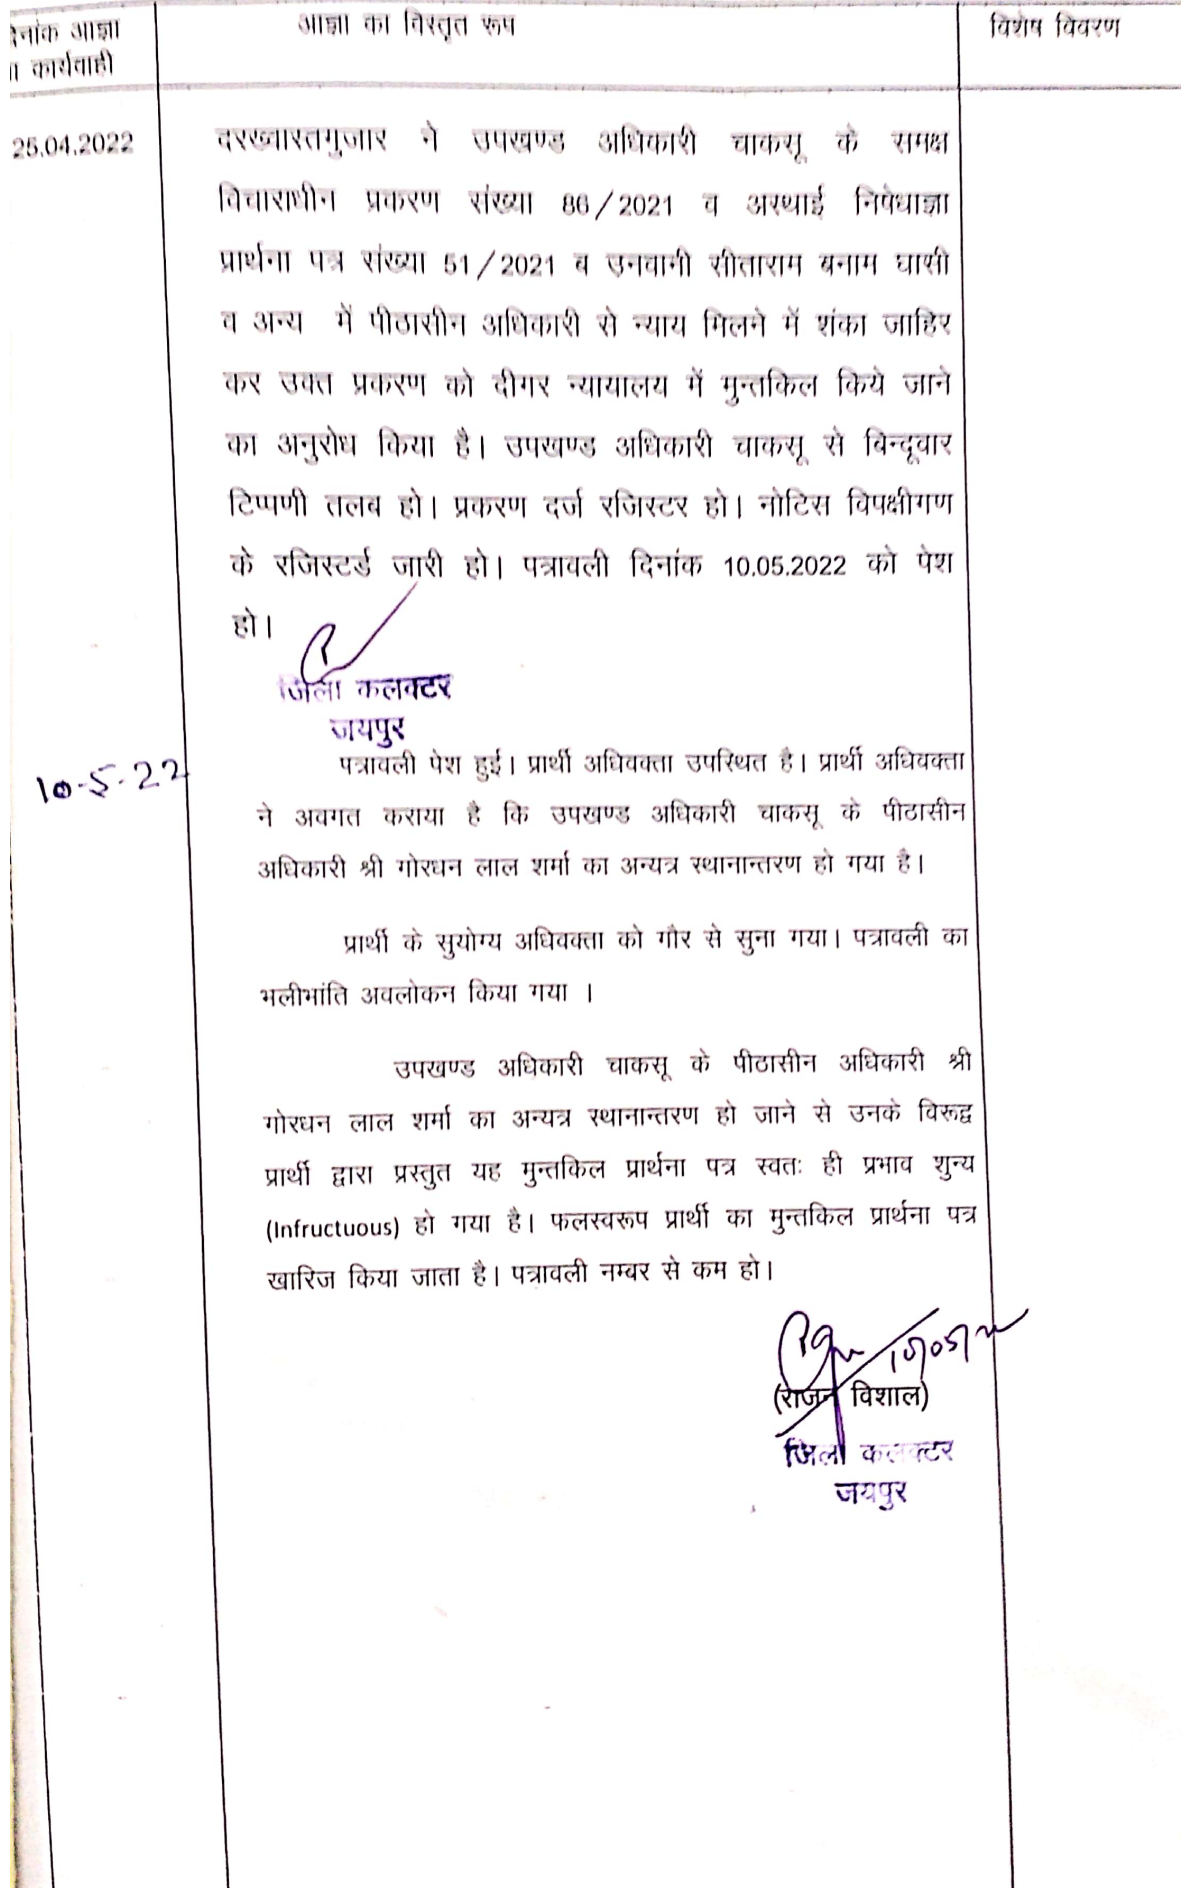 दिनांक आज्ञा
या कार्यवाही
आज्ञा का विस्तृत रूप
विशेष विवरण
25.04.2022
दरख्वास्तगुजार ने उपखण्ड अधिकारी चाकसू के समक्ष
विचाराधीन प्रकरण संख्या 86/2021 व अस्थाई निषेधाज्ञा
प्रार्थना पत्र संख्या 51/2021 ब उनवानी सीताराम बनाम घासी
व अन्य में पीठासीन अधिकारी से न्याय मिलने में शंका जाहिर
कर उक्त प्रकरण को दीगर न्यायालय में मुन्तकिल किये जाने
का अनुरोध किया है। उपखण्ड अधिकारी चाकसू से बिन्दूवार
टिप्पणी तलब हो। प्रकरण दर्ज रजिस्टर हो। नोटिस विपक्षीगण
के रजिस्टर्ड जारी हो। पत्रावली दिनांक 10.05.2022 को पेश
हो।
जिला कलक्टर
जयपुर
10-5-22
पत्रावली पेश हुई। प्रार्थी अधिवक्ता उपस्थित है। प्रार्थी अधिवक्ता
ने अवगत कराया है कि उपखण्ड अधिकारी चाकसू के पीठासीन
अधिकारी श्री गोरधन लाल शर्मा का अन्यत्र स्थानान्तरण हो गया है।
प्रार्थी के सुयोग्य अधिवक्ता को गौर से सुना गया। पत्रावली का
भलीभांति अवलोकन किया गया ।
उपखण्ड अधिकारी चाकसू के पीठासीन अधिकारी श्री
गोरधन लाल शर्मा का अन्यत्र स्थानान्तरण हो जाने से उनके विरूद्व
प्रार्थी द्वारा प्रस्तुत यह मुन्तकिल प्रार्थना पत्र स्वतः ही प्रभाव शुन्य
(Infructuous) हो गया है। फलस्वरूप प्रार्थी का मुन्तकिल प्रार्थना पत्र
खारिज किया जाता है। पत्रावली नम्बर से कम हो।
10/05/22
(राजन विशाल)
जिला कलक्टर
जयपुर